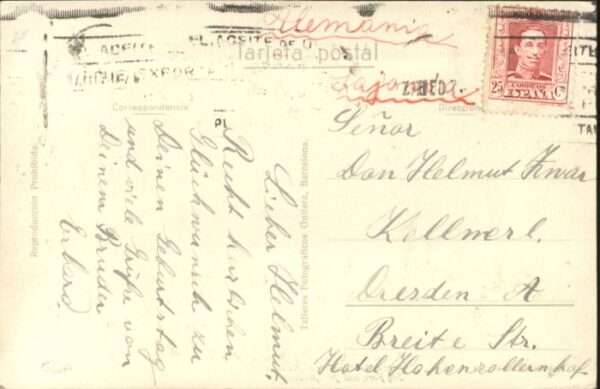 Alemania
ACEITE
EL ACEITE DE O
Tarjeta postal
Correspondencia
Reproducción Prohibida.
Talleres Fotográficos Guilera, Barcelona.
25 Cs
CORREOS
ESPAÑA
Lieber Helmut.
Recht herzlichen
Glückwunsch zu
Deinen Geburtstag
und viele Grüße von
Deinem Bruder
Erhard.
Señor
Don Helmut
Dresden A
Breite Str.
Hotel Hohenzollernhof.